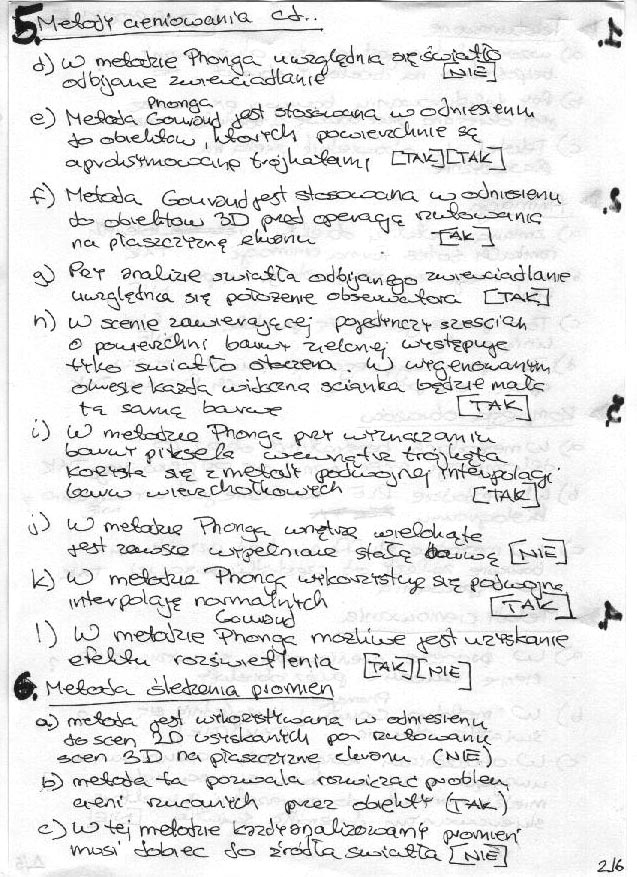 5. Metody cieniowania cd..
d) W metodzie Phonga uwzględnia się światło
odbijane zwierciadlanie [NIE]
Phonga
e) Metoda Gouroud jest stosowana w odniesieniu
do obiektów, których powierzchnie są
aproksymowane trójkątami [TAK][TAK]
f) Metoda Gouroud jest stosowana w odniesieniu
do obiektów 3D przed operacją rzutowania
na płaszczyznę ekranu [TAK]
g) Przy analizie światła odbijanego zwierciadlanie
uwzględnia się położenie obserwatora [TAK]
h) W scenie zawierającej pojedynczy sześcian
o powierzchni barwy zielonej występuje
tylko światło otoczenia. W wygenerowanym
okresie każda widoczna ścianka będzie miała
tą samą barwę [TAK]
i) W metodzie Phonga przy wyznaczaniu
barwy piksela wewnątrz trójkąta
korzysta się z metody podwójnej interpolacji
barw wierzchołkowych [TAK]
j) W metodzie Phonga wnętrze wielokąta
jest zawsze wypełniane stałą barwą [NIE]
k) W metodzie Phonga wykorzystuje się podwójną
interpolaję normalnych [TAK]
Gouroud
l) W metodzie Phonga możliwe jest uzyskanie
efektu rozświetlenia [TAK][NIE]
6. Metoda śledzenia promien
a) metoda jest wykorzystywana w odniesieniu
do scen 2D uzyskanych po rzutowaniu
scen 3D na płaszczyznę ekranu (NIE)
b) metoda ta pozwala rozwiązać problem
cieni rzucanych przez obiekty (TAK)
c) W tej metodzie każdy analizowany promień
musi dobiec do źródła światła [NIE]
2/6